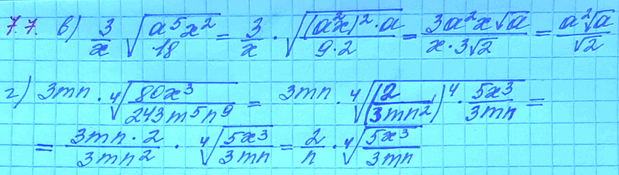 7.7. в) 3/x √(a⁵x²/18) = 3/x · √((a²x)²·a/(9·2)) = 3a²x√a/(x·3√2) = a²√a/√2
г) 3mn · ⁴√(80x³/(243m⁵n⁹)) = 3mn · ⁴√((2/(3mn²))⁴ · 5x³/(3mn)) =
= 3mn·2/(3mn²) · ⁴√(5x³/(3mn)) = 2/n · ⁴√(5x³/(3mn))